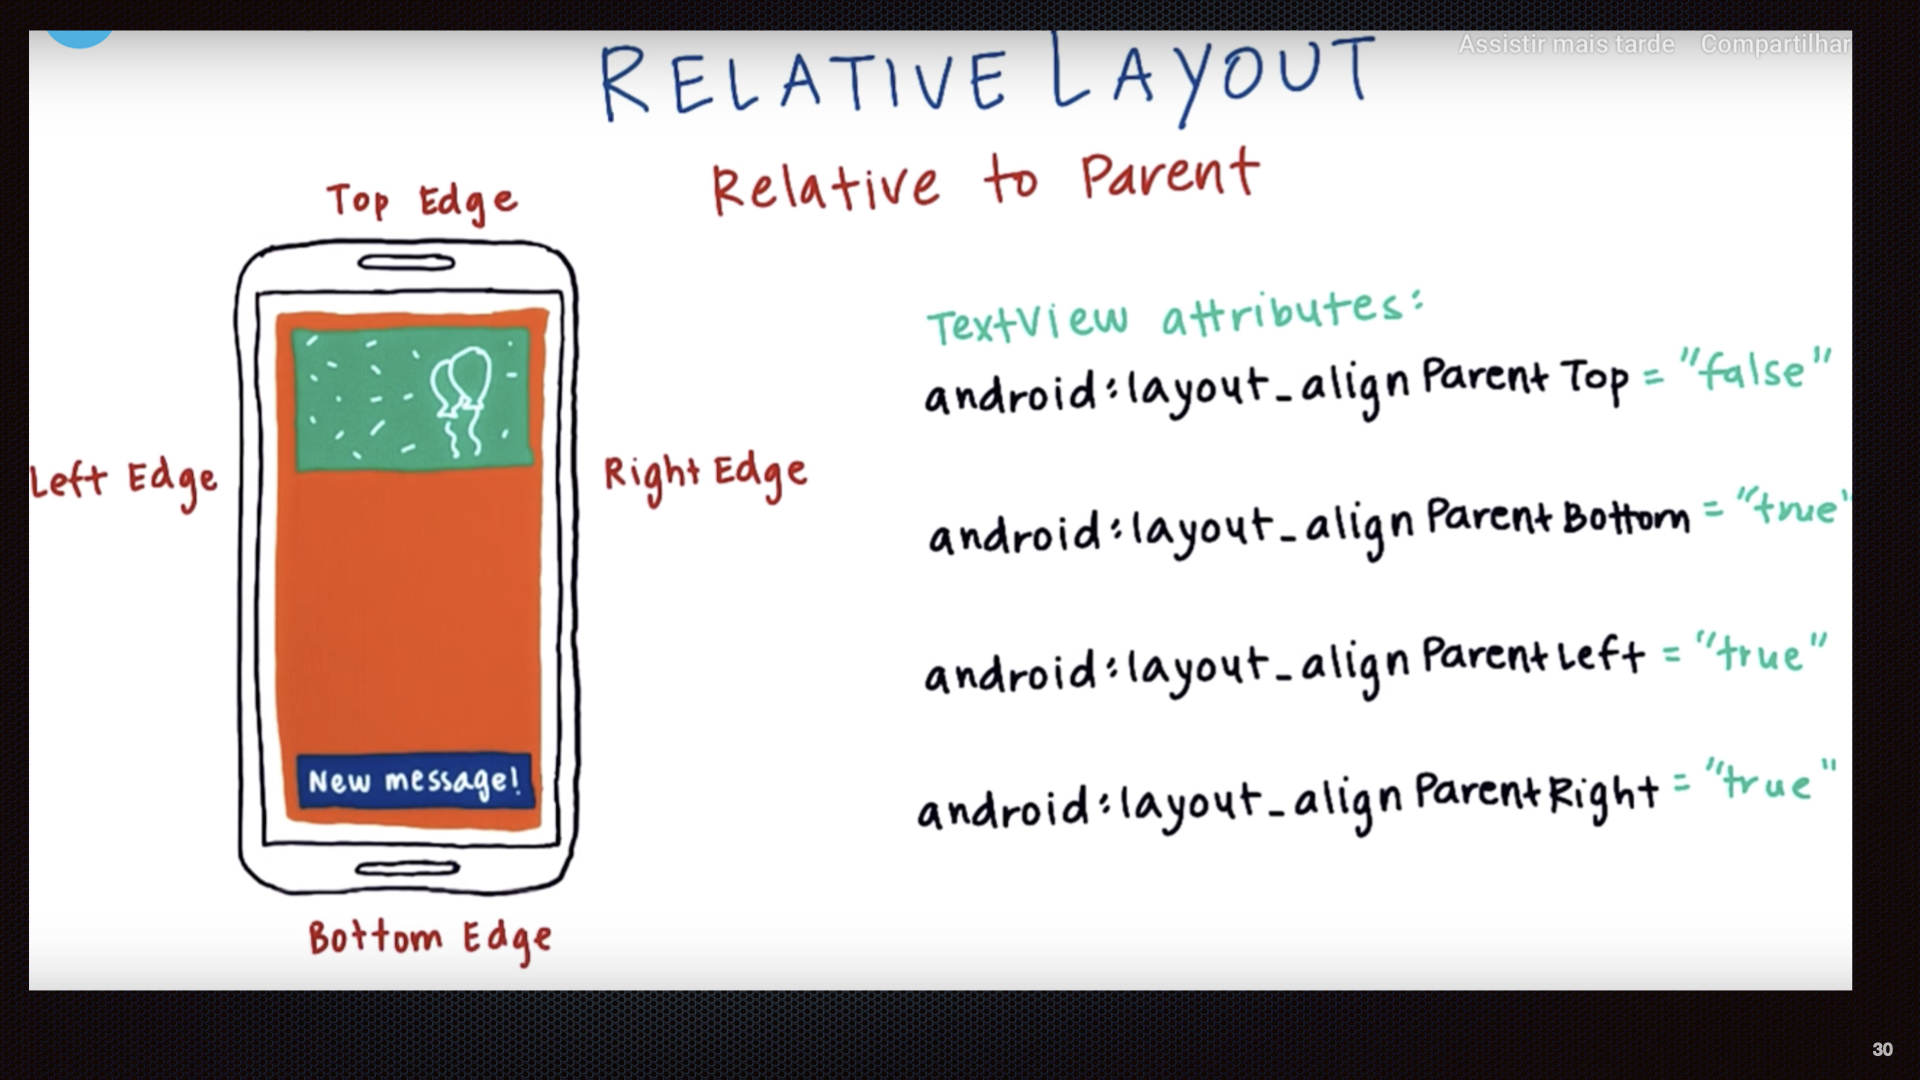 Assistir mais tarde Compartilhar
RELATIVE LAYOUT
Relative to Parent
Top Edge
Left Edge
Right Edge
New message!
Bottom Edge
TextView attributes:
android:layout_alignParentTop = "false"
android:layout_alignParentBottom = "true"
android:layout_alignParentLeft = "true"
android:layout_alignParentRight = "true"
30